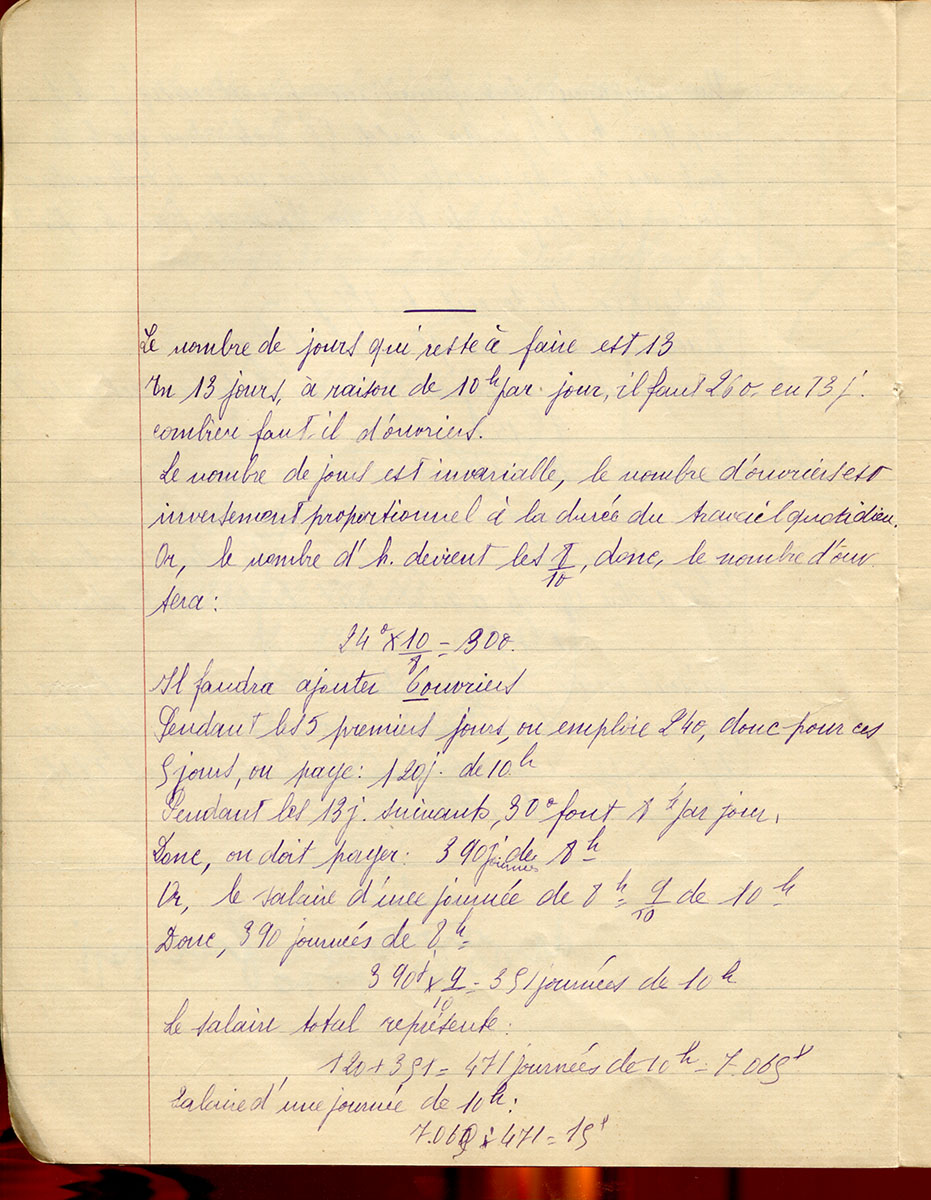 Le nombre de jours qui reste à faire est 13
En 13 jours, à raison de 10h par jour, il faut 26o. en 13 j.
combien faut-il d'ouvriers.
Le nombre de jours est invariable, le nombre d'ouvriers est
inversement proportionnel à la durée du travail quotidien.
Or, le nombre d'h. devient les 8/10, donc, le nombre d'ouv.
sera :
24o × 10/8 = 30o.
Il faudra ajouter 6 ouvriers
Pendant les 5 premiers jours, on emploie 24o, donc pour ces
5 jours, on paye : 120j. de 10h
Pendant les 13 j. suivants, 30o font 8h par jour.
Donc, on doit payer : 390 journées de 8h
Or, le salaire d'une journée de 8h = 9/10 de 10h
Donc, 390 journées de 8h =
390j × 9/10 = 351 journées de 10h
Le salaire total représente :
120 + 351 = 471 journées de 10h = 7.065f
Salaire d'une journée de 10h :
7.065 : 471 = 15f